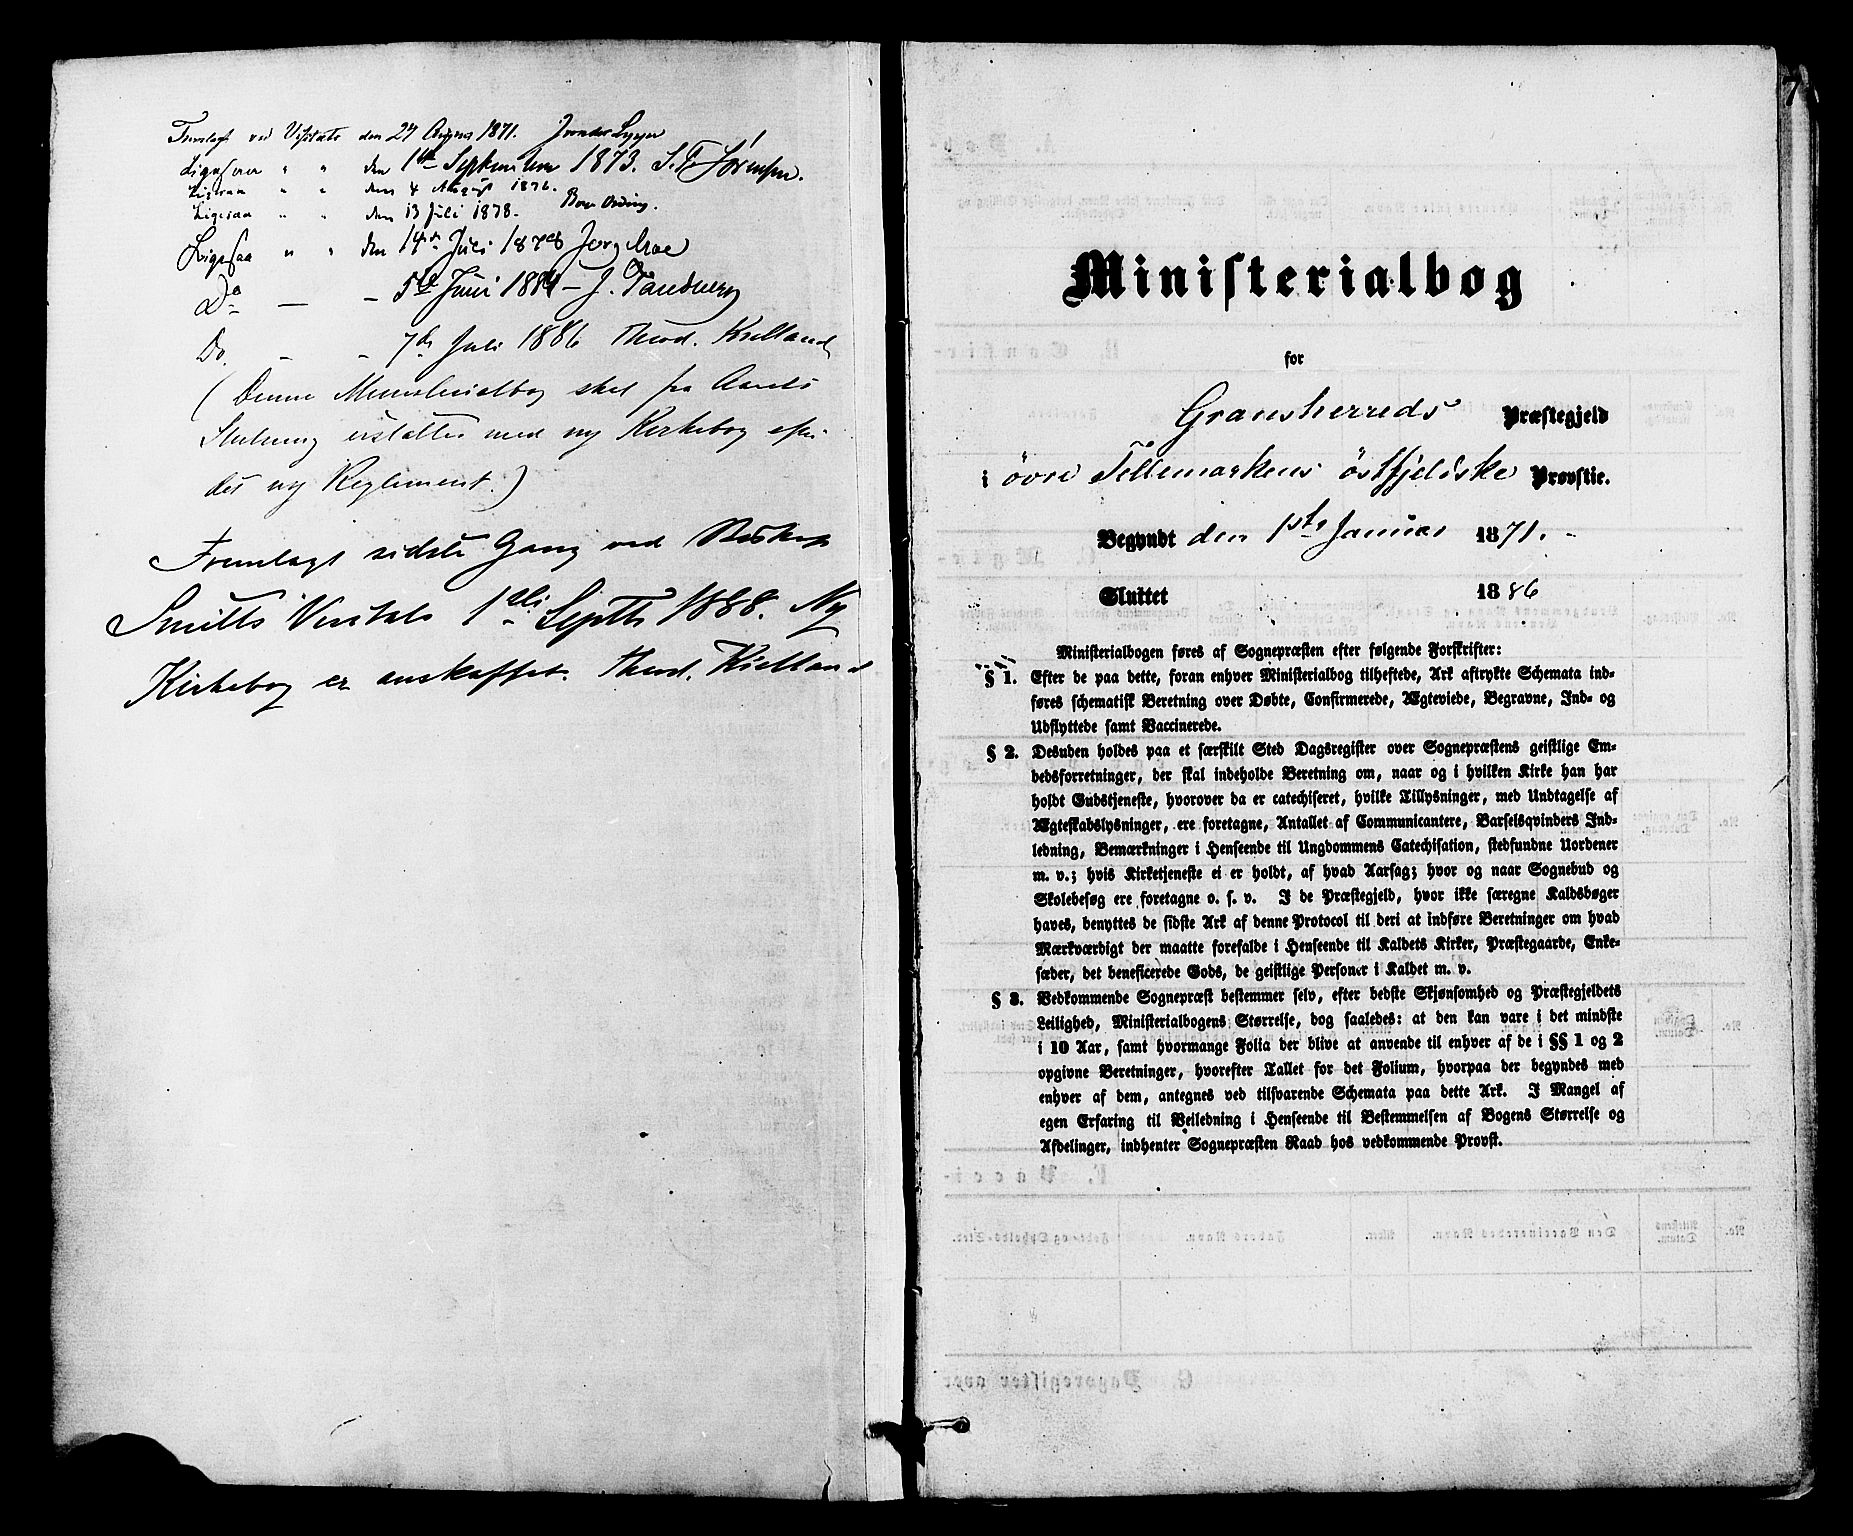 Fremlagt ved Visitats den 27 August 1871.
Ligesaa " " den 1ste September 1873. S. T. Sørensen.
Ligesaa " " den 4 August 1876.
Ligesaa " " den 13 Juli 1878.
Ligesaa " " den 14de Juli 1878 Jørg Moe
Do — - 5te Juni 1884 - J. Tandberg
Do. - - 7de Juli 1886 Theod. Kielland
(Denne Ministerialbog skal fra Aarets
Slutning erstattes med ny Kirkebog efter
det ny Reglement.)
Fremlagt sidste Gang ved Biskop
Smitts Visitats 1ste Septb 1888. Ny
Kirkebog er anskaffet. Theod. Kielland
7
Ministerialbog
for
Gransherreds Præstegjeld
i øvre Tellemarkens østfjeldske Provstie.
Begyndt den 1ste Januar 1871. -
Sluttet 1886
Ministerialbogen føres af Sognepræsten efter følgende Forskrifter:
§ 1. Efter de paa dette, foran enhver Ministerialbog tilheftede, Ark aftrykte Schemata ind-
føres schematisk Beretning over Døbte, Confirmerede, Ægteviede, Begravne, Ind- og
Udflyttede samt Vaccinerede.
§ 2. Desuden holdes paa et særskilt Sted Dagsregister over Sognepræstens geistlige Em-
bedsforretninger, der skal indeholde Beretning om, naar og i hvilken Kirke han har
holdt Gudstjeneste, hvorover da er catechiseret, hvilke Tillysninger, med Undtagelse af
Ægteskabslysninger, ere foretagne, Antallet af Communicantere, Barselqvinders Ind-
ledning, Bemærkninger i Henseende til Ungdommens Catechisation, stedfundne Uordener
m. v.; hvis Kirketjeneste ei er holdt, af hvad Aarsag; hvor og naar Sognebud og
Skolebesøg ere foretagne o. s. v. I de Præstegjeld, hvor ikke særegne Kaldsbøger
haves, benyttes de sidste Ark af denne Protocol til deri at indføre Beretninger om hvad
Mærkværdigt der maatte forefalde i Henseende til Kaldets Kirker, Præstegaarde, Enke-
sæder, det beneficerede Gods, de geistlige Personer i Kaldet m. v.
§ 3. Vedkommende Sognepræst bestemmer selv, efter bedste Skjønsomhed og Præstegjeldets
Leilighed, Ministerialbogens Størrelse, dog saaledes: at den kan vare i det mindste
i 10 Aar, samt hvormange Folia der blive at anvende til enhver af de i §§ 1 og 2
opgivne Beretninger, hvorefter Tallet for det Folium, hvorpaa der begyndes med
enhver af dem, antegnes ved tilsvarende Schemata paa dette Ark. I Mangel af
egen Erfaring til Veiledning i Henseende til Bestemmelsen af Bogens Størrelse og
Afdelinger, indhenter Sognepræsten Raad hos vedkommende Provst.